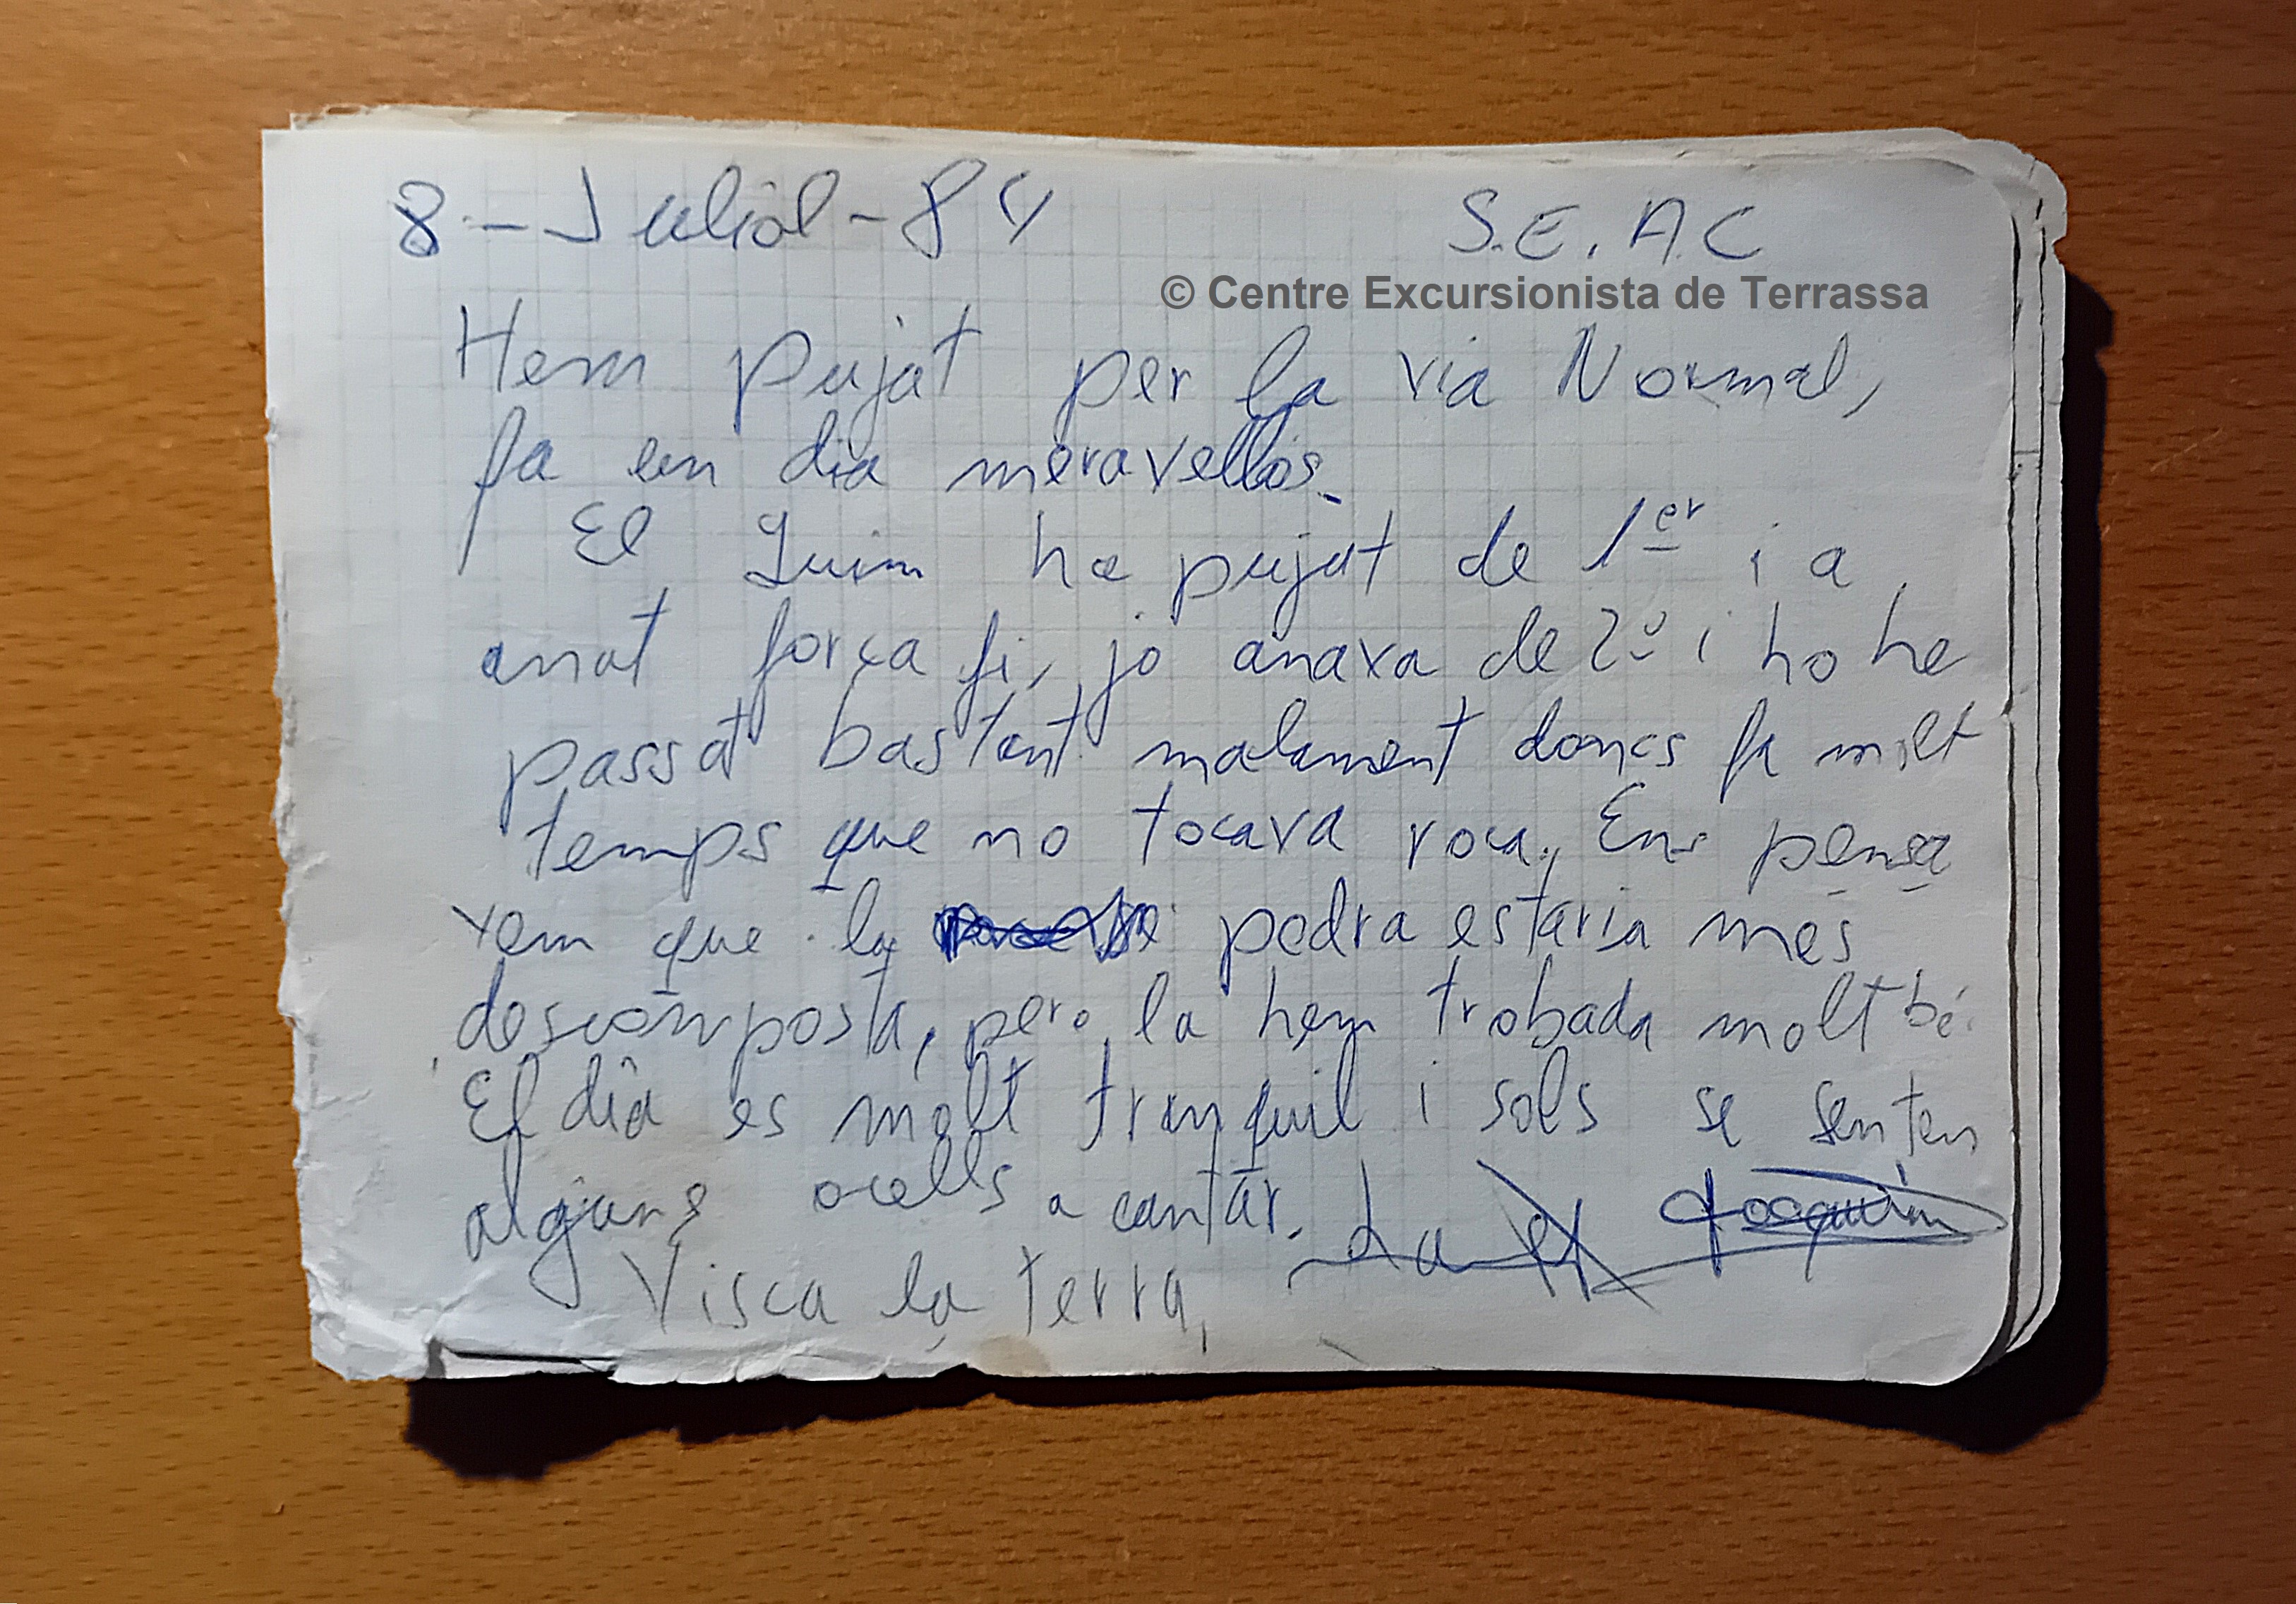 8 - Juliol - 84
S.E.A.C
© Centre Excursionista de Terrassa
Hem pujat per la via Normal,
fa un dia meravellós.
El Quim ha pujat de 1er i a
anat força fi, jo anava de 2º i ho he
passat bastant malament doncs fa molt
temps que no tocava roca. Ens pensa
vem que la pedra estaria mes
descomposta, pero la hem trobada molt bé.
El dia es molt tranquil i sols se senten
alguns ocells a cantar.
Joaquim
Visca la terra,